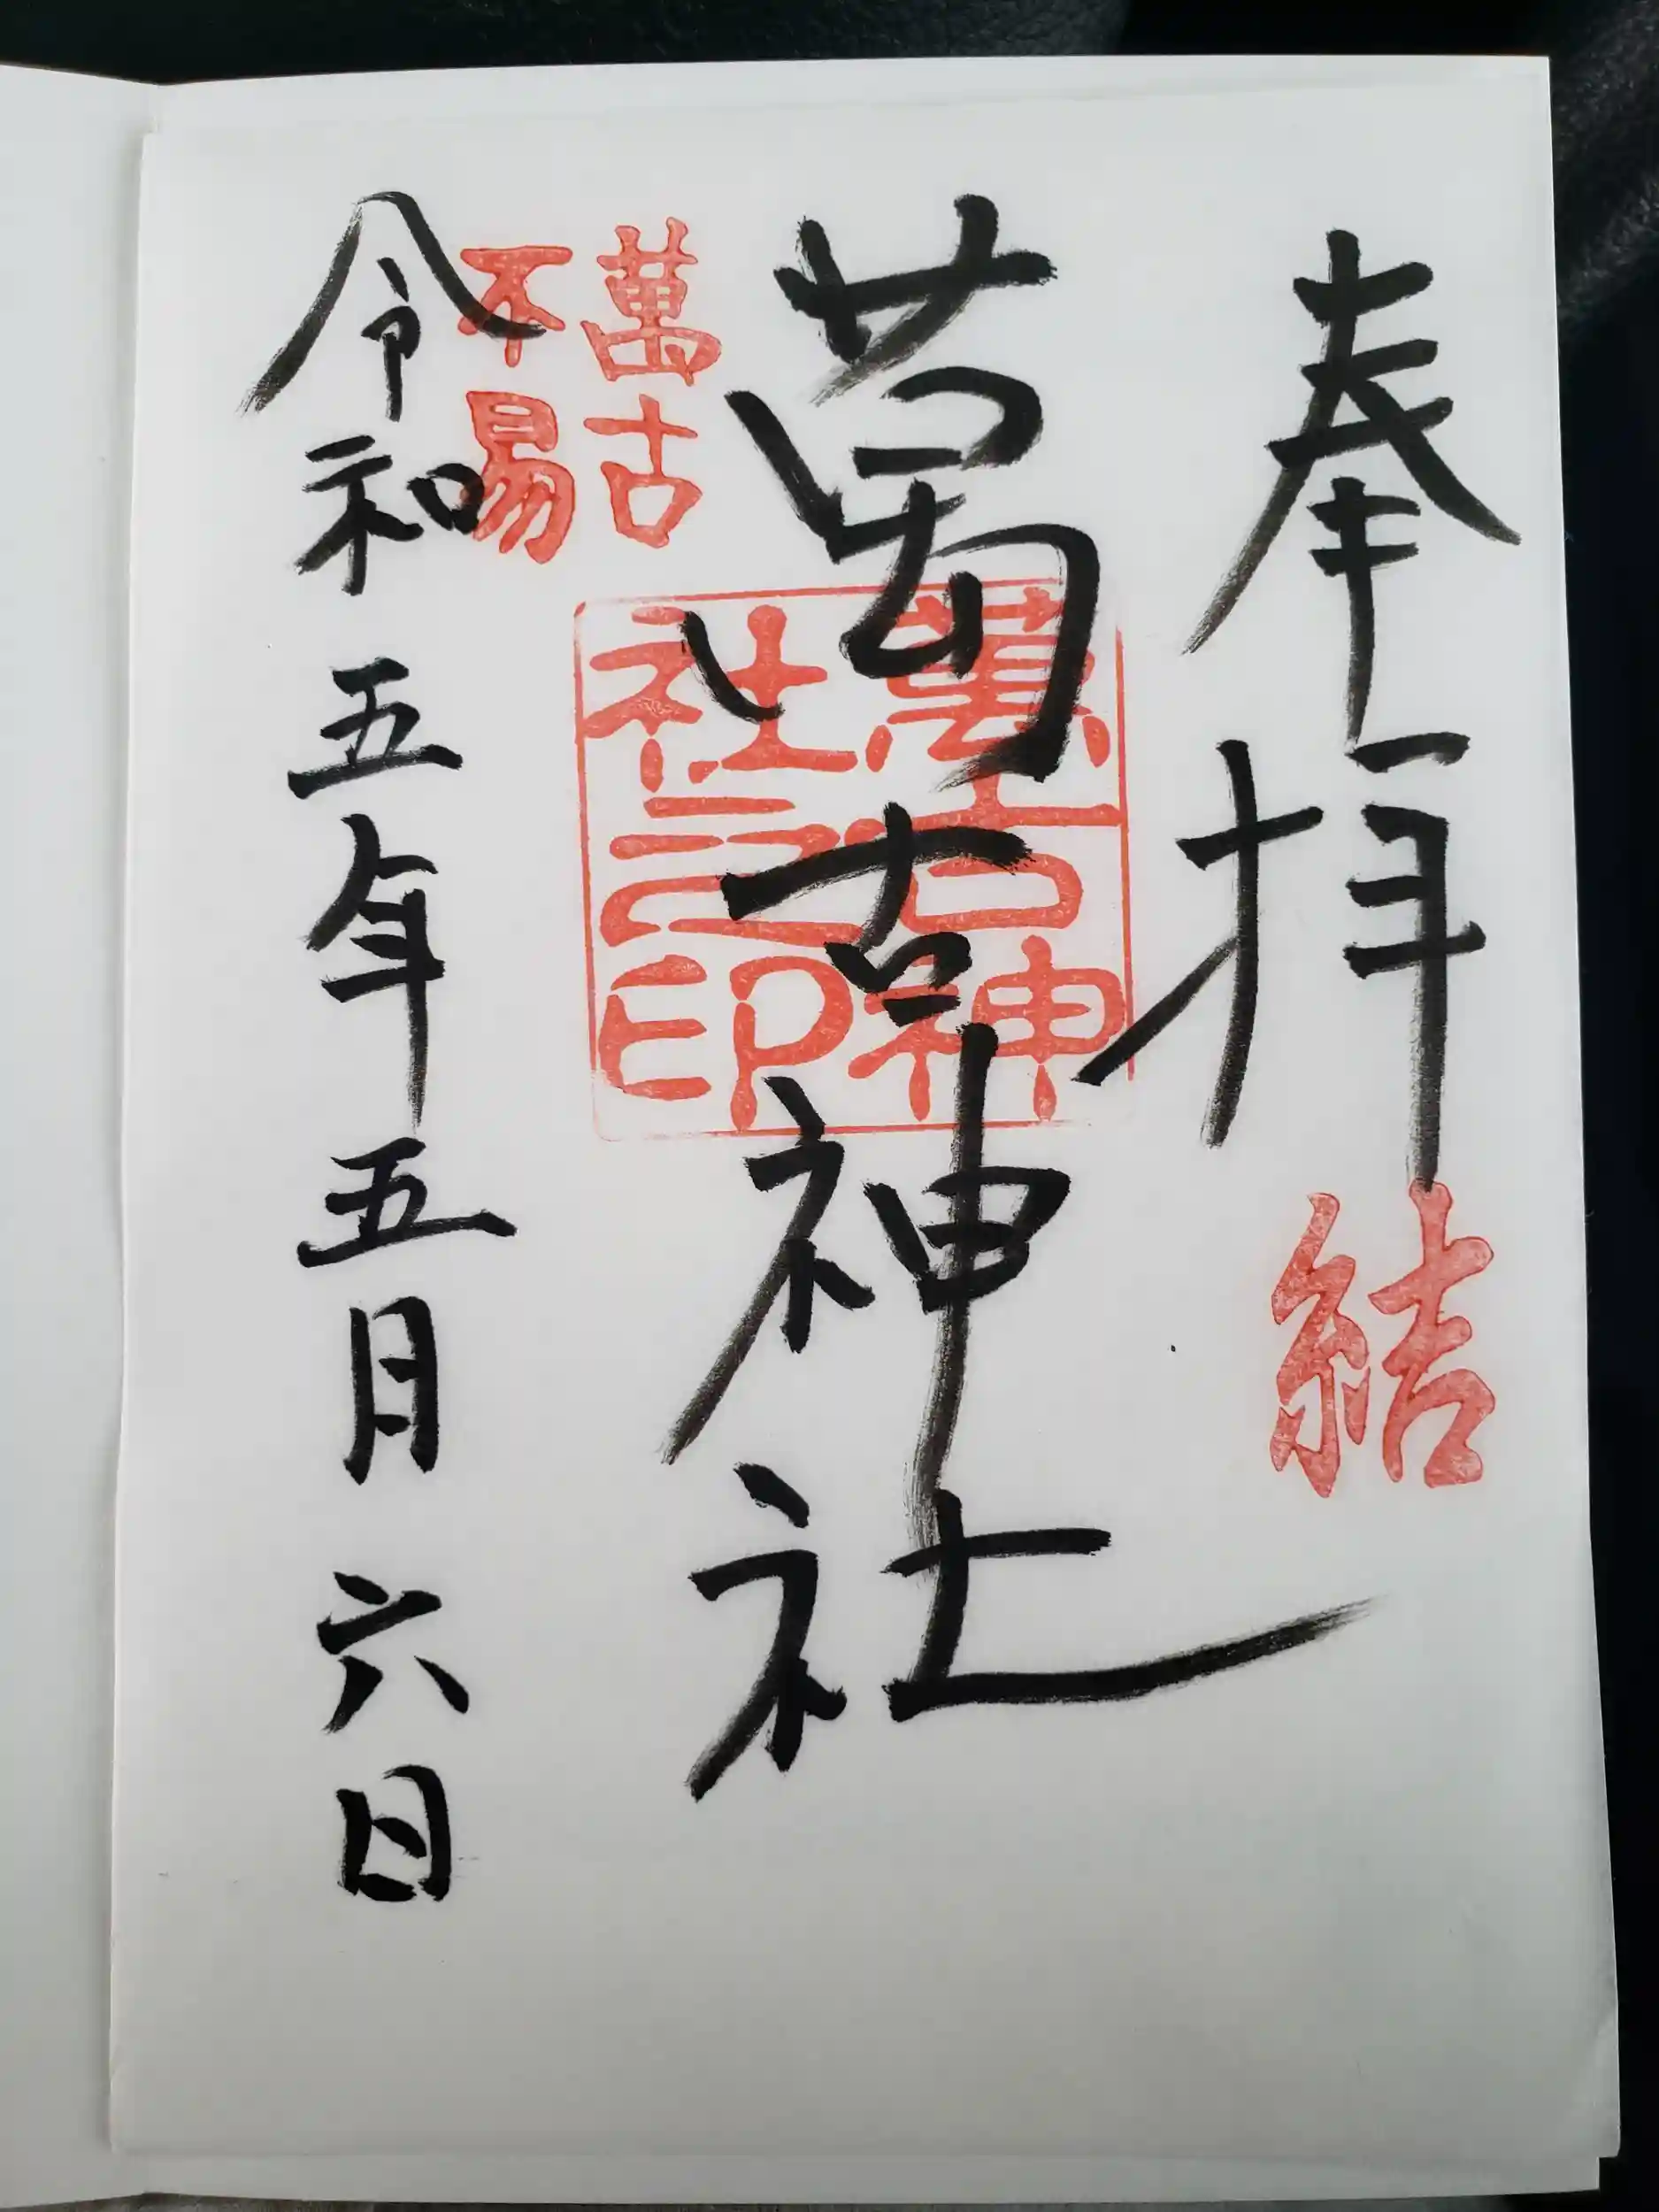 奉拝
結
萬古神社
萬古
不易
萬古神
社之印
令和五年五月六日